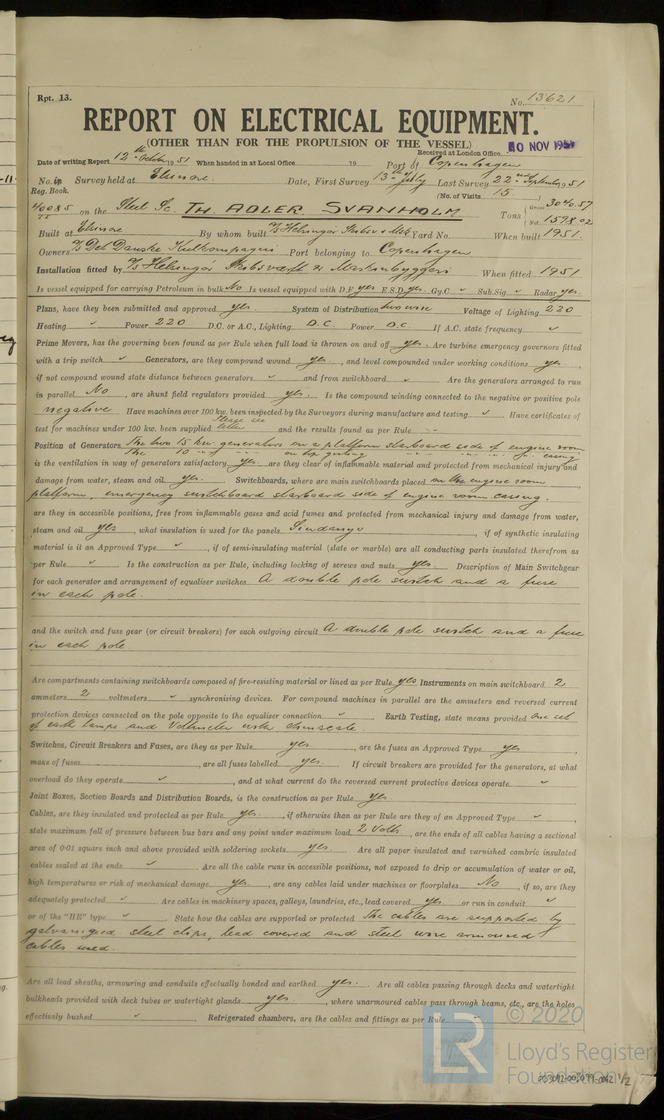 Rpt. 13.
No. 13621
REPORT ON ELECTRICAL EQUIPMENT.
(OTHER THAN FOR THE PROPULSION OF THE VESSEL)
Received at London Office 10 NOV 1951
Date of writing Report 12th October 1951 When handed in at Local Office 19 Port of Copenhagen
No. in Survey held at Elsinore. Date, First Survey 13th July Last Survey 22nd September 1951
Reg. Book. (No. of Visits 15
40085 on the Steel Sc. TH. ADLER SVANHOLM Tons Gross 3040.57
Net 1578.02
Built at Elsinore By whom built A/S Helsingør Skibsv. & Mek. Yard No. When built 1951.
Owners A/S Det Danske Kulkompagni Port belonging to Copenhagen
Installation fitted by A/S Helsingør Skibsværft & Maskinbyggeri When fitted 1951
Is vessel equipped for carrying Petroleum in bulk No Is vessel equipped with D.F. yes E.S.D. yes Gy.C. " Sub.Sig " Radar yes.
Plans, have they been submitted and approved yes. System of Distribution two wire Voltage of Lighting 220
Heating " Power 220 D.C. or A.C., Lighting D.C. Power D.C. If A.C. state frequency "
Prime Movers, has the governing been found as per Rule when full load is thrown on and off yes. Are turbine emergency governors fitted
with a trip switch " Generators, are they compound wound yes, and level compounded under working conditions yes,
if not compound wound state distance between generators " and from switchboard " Are the generators arranged to run
in parallel No, are shunt field regulators provided yes. Is the compound winding connected to the negative or positive pole
negative Have machines over 100 kw. been inspected by the Surveyors during manufacture and testing " Have certificates of
test for machines under 100 kw. been supplied Please see letter and the results found as per Rule "
Position of Generators The two 15 kw. generators on a platform starboard side of engine room
The 10 " " on top grating " " " " casing
is the ventilation in way of generators satisfactory yes are they clear of inflammable material and protected from mechanical injury and
damage from water, steam and oil yes. Switchboards, where are main switchboards placed on the engine room
platform, emergency switchboard starboard side of engine room casing.
are they in accessible positions, free from inflammable gases and acid fumes and protected from mechanical injury and damage from water,
steam and oil yes, what insulation is used for the panels Sindanyo, if of synthetic insulating
material is it an Approved Type ", if of semi-insulating material (slate or marble) are all conducting parts insulated therefrom as
per Rule " Is the construction as per Rule, including locking of screws and nuts yes Description of Main Switchgear
for each generator and arrangement of equaliser switches A double pole switch and a fuse
in each pole.
and the switch and fuse gear (or circuit breakers) for each outgoing circuit A double pole switch and a fuse
in each pole
Are compartments containing switchboards composed of fire-resisting material or lined as per Rule yes Instruments on main switchboard 2
ammeters 2 voltmeters " synchronising devices. For compound machines in parallel are the ammeters and reversed current
protection devices connected on the pole opposite to the equaliser connection " Earth Testing, state means provided one set
of earth lamps and Voltmeter with ohmscale.
Switches, Circuit Breakers and Fuses, are they as per Rule yes, are the fuses an Approved Type yes,
make of fuses, are all fuses labelled yes. If circuit breakers are provided for the generators, at what
overload do they operate ", and at what current do the reversed current protective devices operate "
Joint Boxes, Section Boards and Distribution Boards, is the construction as per Rule yes
Cables, are they insulated and protected as per Rule yes, if otherwise than as per Rule are they of an Approved Type ",
state maximum fall of pressure between bus bars and any point under maximum load 2 Volts, are the ends of all cables having a sectional
area of 0·01 square inch and above provided with soldering sockets yes. Are all paper insulated and varnished cambric insulated
cables sealed at the ends " Are all the cable runs in accessible positions, not exposed to drip or accumulation of water or oil,
high temperatures or risk of mechanical damage yes, are any cables laid under machines or floorplates No, if so, are they
adequately protected " Are cables in machinery spaces, galleys, laundries, etc., lead covered yes or run in conduit "
or of the "HR" type " State how the cables are supported or protected The cables are supported by
galvanized steel clips, lead covered and steel wire armoured
cables used.
Are all lead sheaths, armouring and conduits effectually bonded and earthed yes. Are all cables passing through decks and watertight
bulkheads provided with deck tubes or watertight glands yes, where unarmoured cables pass through beams, etc., are the holes
effectively bushed " Refrigerated chambers, are the cables and fittings as per Rule
LR
© 2020
Lloyd's Register
Foundation
1/2